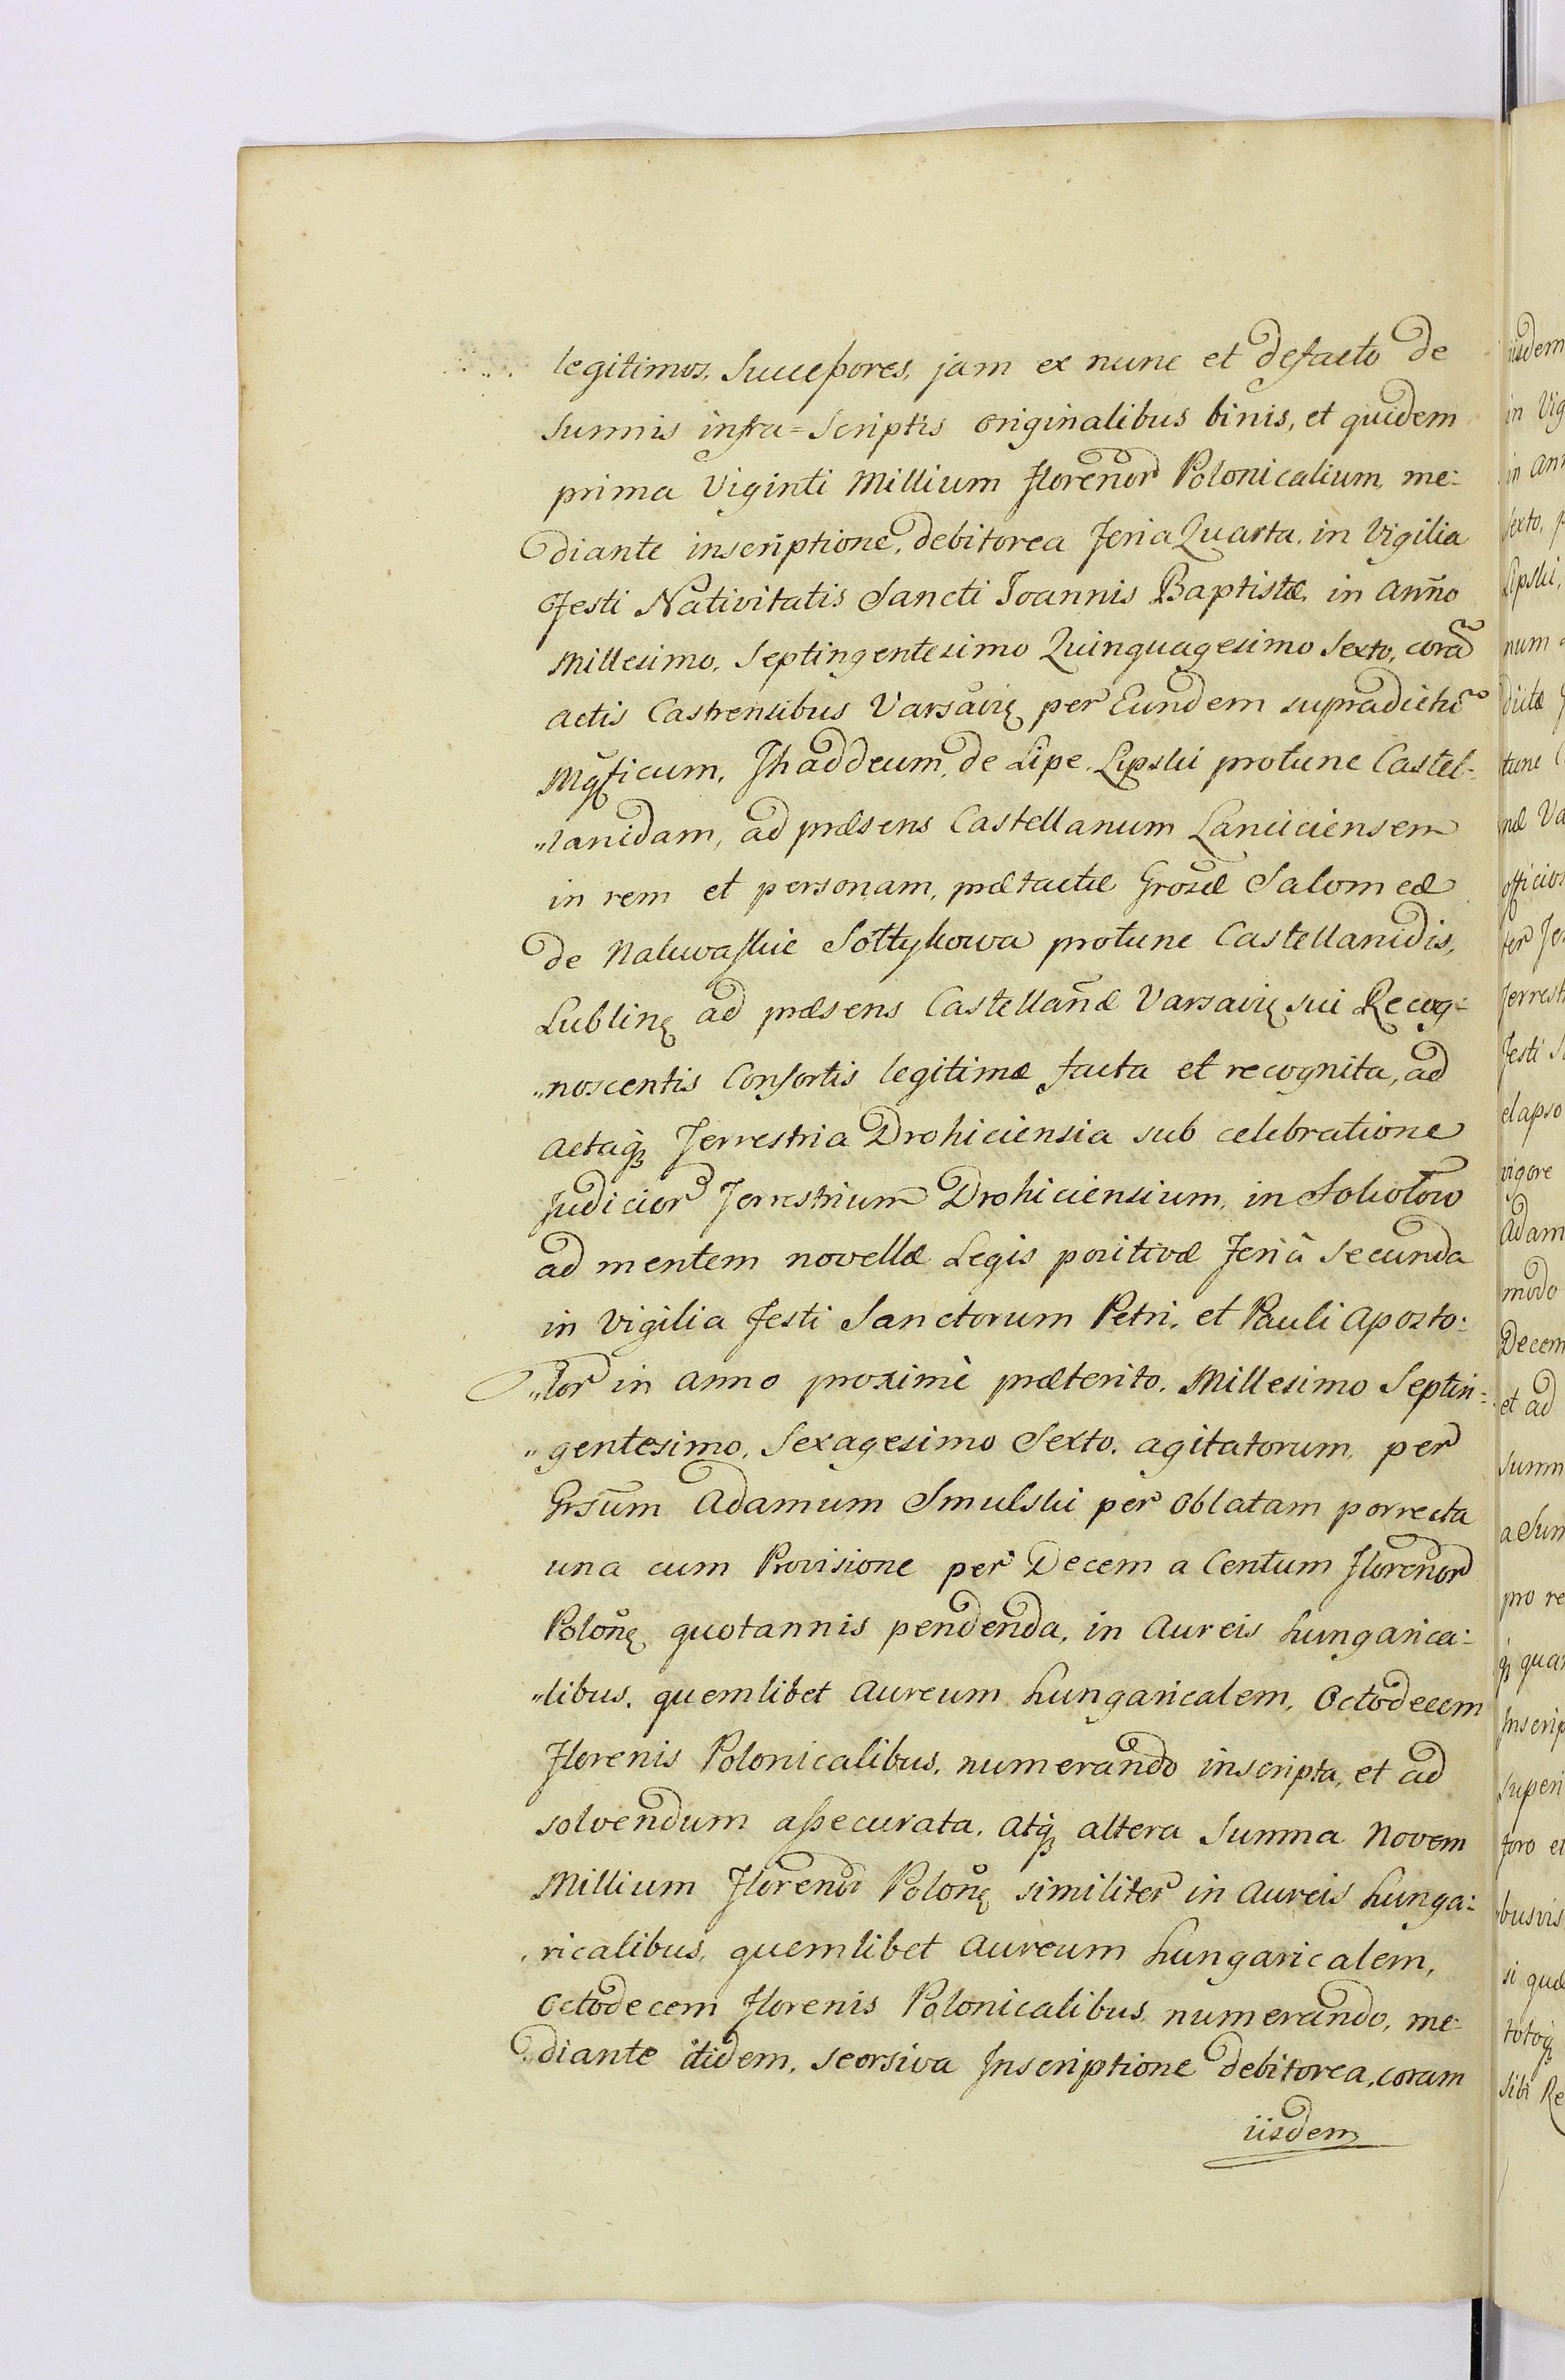 legitimos, Successores, jam ex nunc et defacto de
Summis infra=Scriptis originalibus binis, et quidem
prima Viginti Millium Florenor Polonicalium, me:
diante inscriptione, debitorea Feria Quarta, in Vigilia
Festi Nativitatis Sancti Joannis Baptistæ, in Anño
Millesimo, Septingentesimo Quinquagesimo Sexto, corã
actis Castrensibus Varsavię per Eundem supradictũ
Mgficum, Thaddeum, de Lipe Lipski protunc Castel:
"lanidam, ad præsens Castellanum Lanciciensem
in rem et personam, prætactæ Grosæ Salomeæ
de Nakwaskie Sołtykowa protunc Castellanidis,
Lublinę ad præsens Castellañæ Varsavię sui Recog:
"noscentis Consortis legitimæ facta et recognita, ad
actaq3 Terrestria Drohiciensia sub celebratione
Judicior Terrestrium Drohiciensium, in Sokołow
ad mentem novellæ Legis positivæ Feriâ Secunda
in Vigilia Festi Sanctorum Petri, et Pauli Aposto:
"lor in anno proximè præterito, Millesimo Septin:
"gentesimo, Sexagesimo Sexto, agitatorum, per
Grsũm Adamum Smulski per Oblatam porrecta
una cum Provisione per Decem a Centum Florenor
Polonę quotannis pendenda, in Aureis hungarica:
"libus, quemlibet Aureum hungaricalem, Octodecem
Florenis Polonicalibus, numerando inscripta, et ad
solvendum assecurata, atq3 altera Summa Novem
Millium Florenor Polonę similiter in Aureis hunga:
"ricalibus, quemlibet Aureum hungaricalem,
Octodecem Florenis Polonicalibus numerando, me:
"diante itidem, seorsiva Inscriptione debitorea, coram
iisdem
iisdem
in Vig
in Ann
Sexto, p
Lipski,
num
dictæ
tunc
næ Va
officios
ter Fer
Terrest
Festi S
elapso
vigore
Adam
modo
Decem
et ad
Summ
a Sum
pro re
q3 quar
Inscrip
Superi
foro et
busvis
si quæ
totoq3
sibi Re